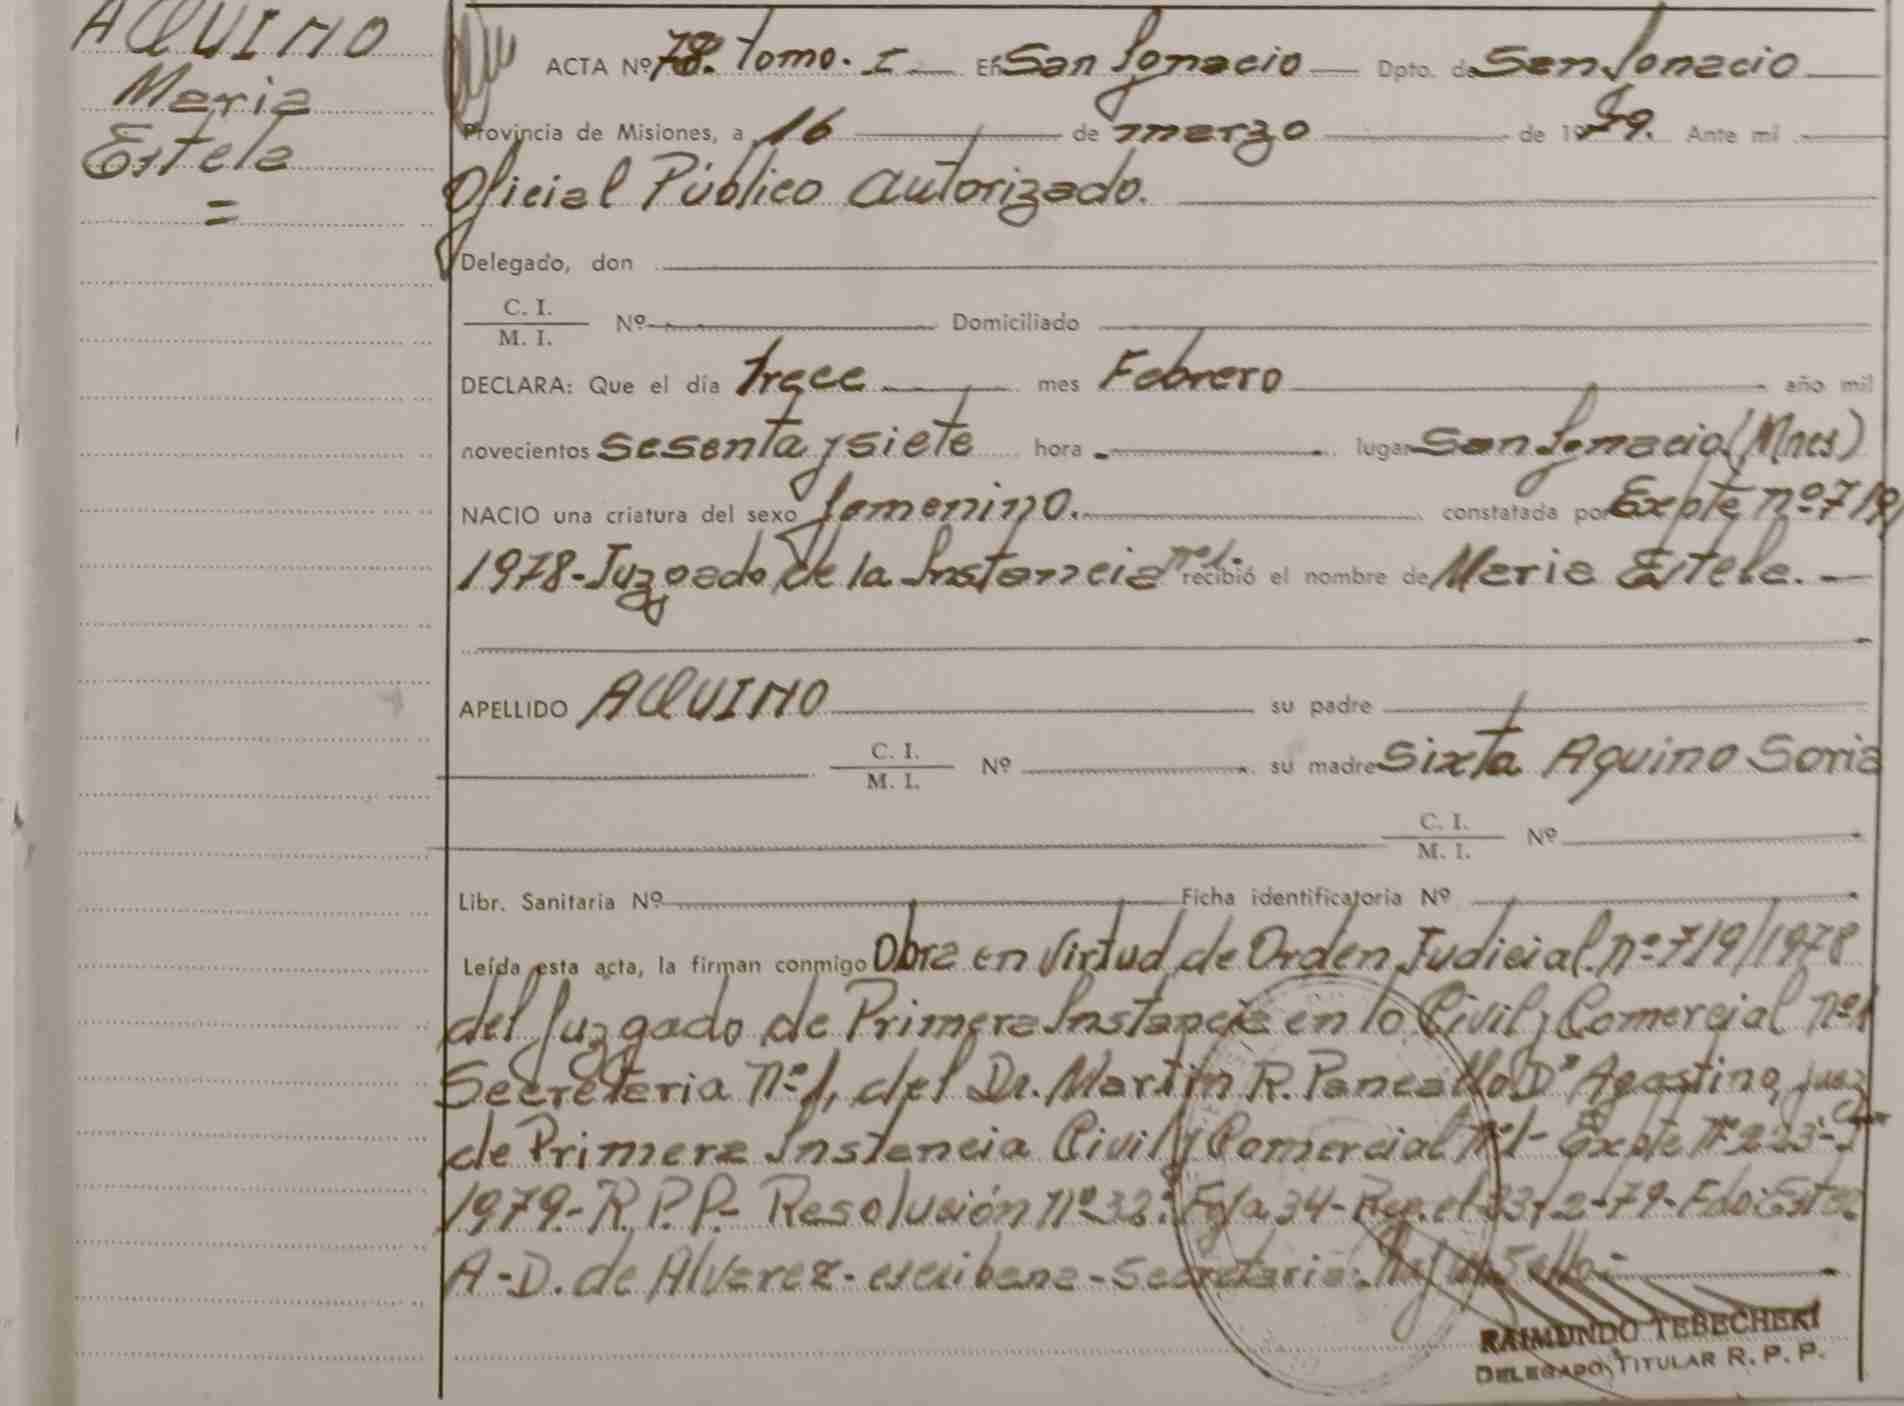 AQUINO
Maria
Estela
=
ACTA Nº 78. Tomo. I En San Ignacio Dpto. de San Ignacio
Provincia de Misiones, a 16 de marzo de 1979. Ante mí
Oficial Público Autorizado.
Delegado, don
C. I.
M. I. Nº Domiciliado
DECLARA: Que el día trece mes Febrero año mil
novecientos sesenta y siete hora lugar San Ignacio (Mnes)
NACIO una criatura del sexo femenino. constatada por Expte nº 719/
1978-Juzgado de 1a Instancia nº1.- recibió el nombre de Maria Estela.-
APELLIDO AQUINO su padre
C. I.
M. I. Nº su madre Sixta Aquino Soria
C. I.
M. I. Nº
Libr. Sanitaria Nº Ficha identificatoria Nº
Leída esta acta, la firman conmigo Obra en Virtud de Orden Judicial. nº 719/1978
del Juzgado de Primera Instancia en lo Civil y Comercial nº1
Secretaria nº1, del Dr. Martin R. Pancallo D'Agostino, juez
de Primera Instancia Civil y Comercial nº1- Expte nº 223-
1979.- R.P.P.- Resolución nº 32: Foja 34- 2-79- Fdo: Ester
A.-D. de Alvarez- escribana- Secretaria: Sello-
RAIMUNDO TEBECHERI
DELEGADO TITULAR R. P. P.